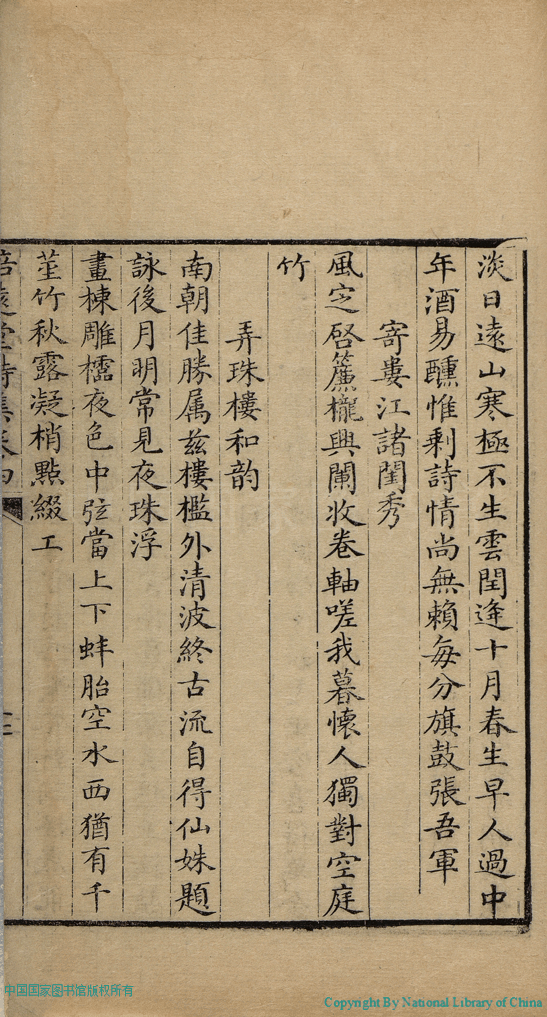 淡日遠山寒極不生雲閏逢十月春生早人過中
年酒易醺惟剩詩情尚無賴每分旗鼓張吾軍
寄婁江諸閨秀
風定啓簾櫳興闌收卷軸嗟我暮懷人獨對空庭
竹
弄珠樓和韵
南朝佳勝属兹樓檻外清波終古流自得仙姝題
詠後月明常見夜珠浮
畫棟雕櫺夜色中弦當上下蚌胎空水西猶有千
莖竹秋露凝梢點綴工
培遠堂詩集卷四
中国国家图书馆版权所有
Copyright By National Library of China